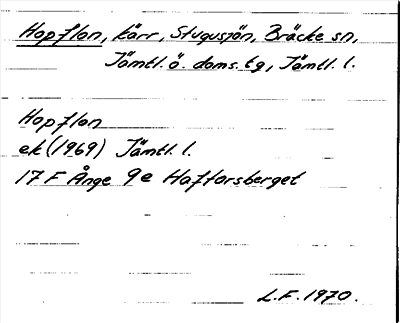 Hopflon, kärr, Stugusjön, Bräcke sn,
Jämtl. ö. doms. tg, Jämtl. l.
Hopflon
ek (1969) Jämtl. l.
17 F Ånge 9e Haftorsberget
L.F. 1970.